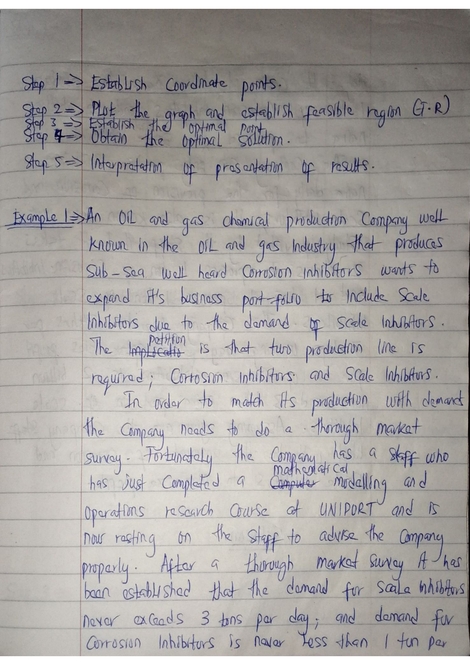 Step 1 => Establish Coordinate points.
Step 2 => Plot the graph and establish feasible region (F.R)
Step 3 => Establish the optimal point
Step 4 => Obtain the optimal solution.
Step 5 => Interpretation of presentation of results.
Example 1 => An OIL and gas chemical production Company well
known in the OIL and gas Industry that produces
Sub-sea well heard Corrosion inhibitors wants to
expand it's business port-folio to Include Scale
Inhibitors due to the demand of Scale Inhibitors.
The petition is that two production line is
required; Corrosion Inhibitors and Scale Inhibitors.
In order to match its production with demand
the Company needs to do a thorough market
survey. Fortunately the Company has a staff who
has just Completed a mathematical modelling and
operations research Course at UNIPORT and is
now resting on the staff to advise the Company
properly. After a thorough market survey it has
been established that the demand for Scale inhibitors
never exceeds 3 tons per day; and demand for
Corrosion Inhibitors is never less than 1 ton per